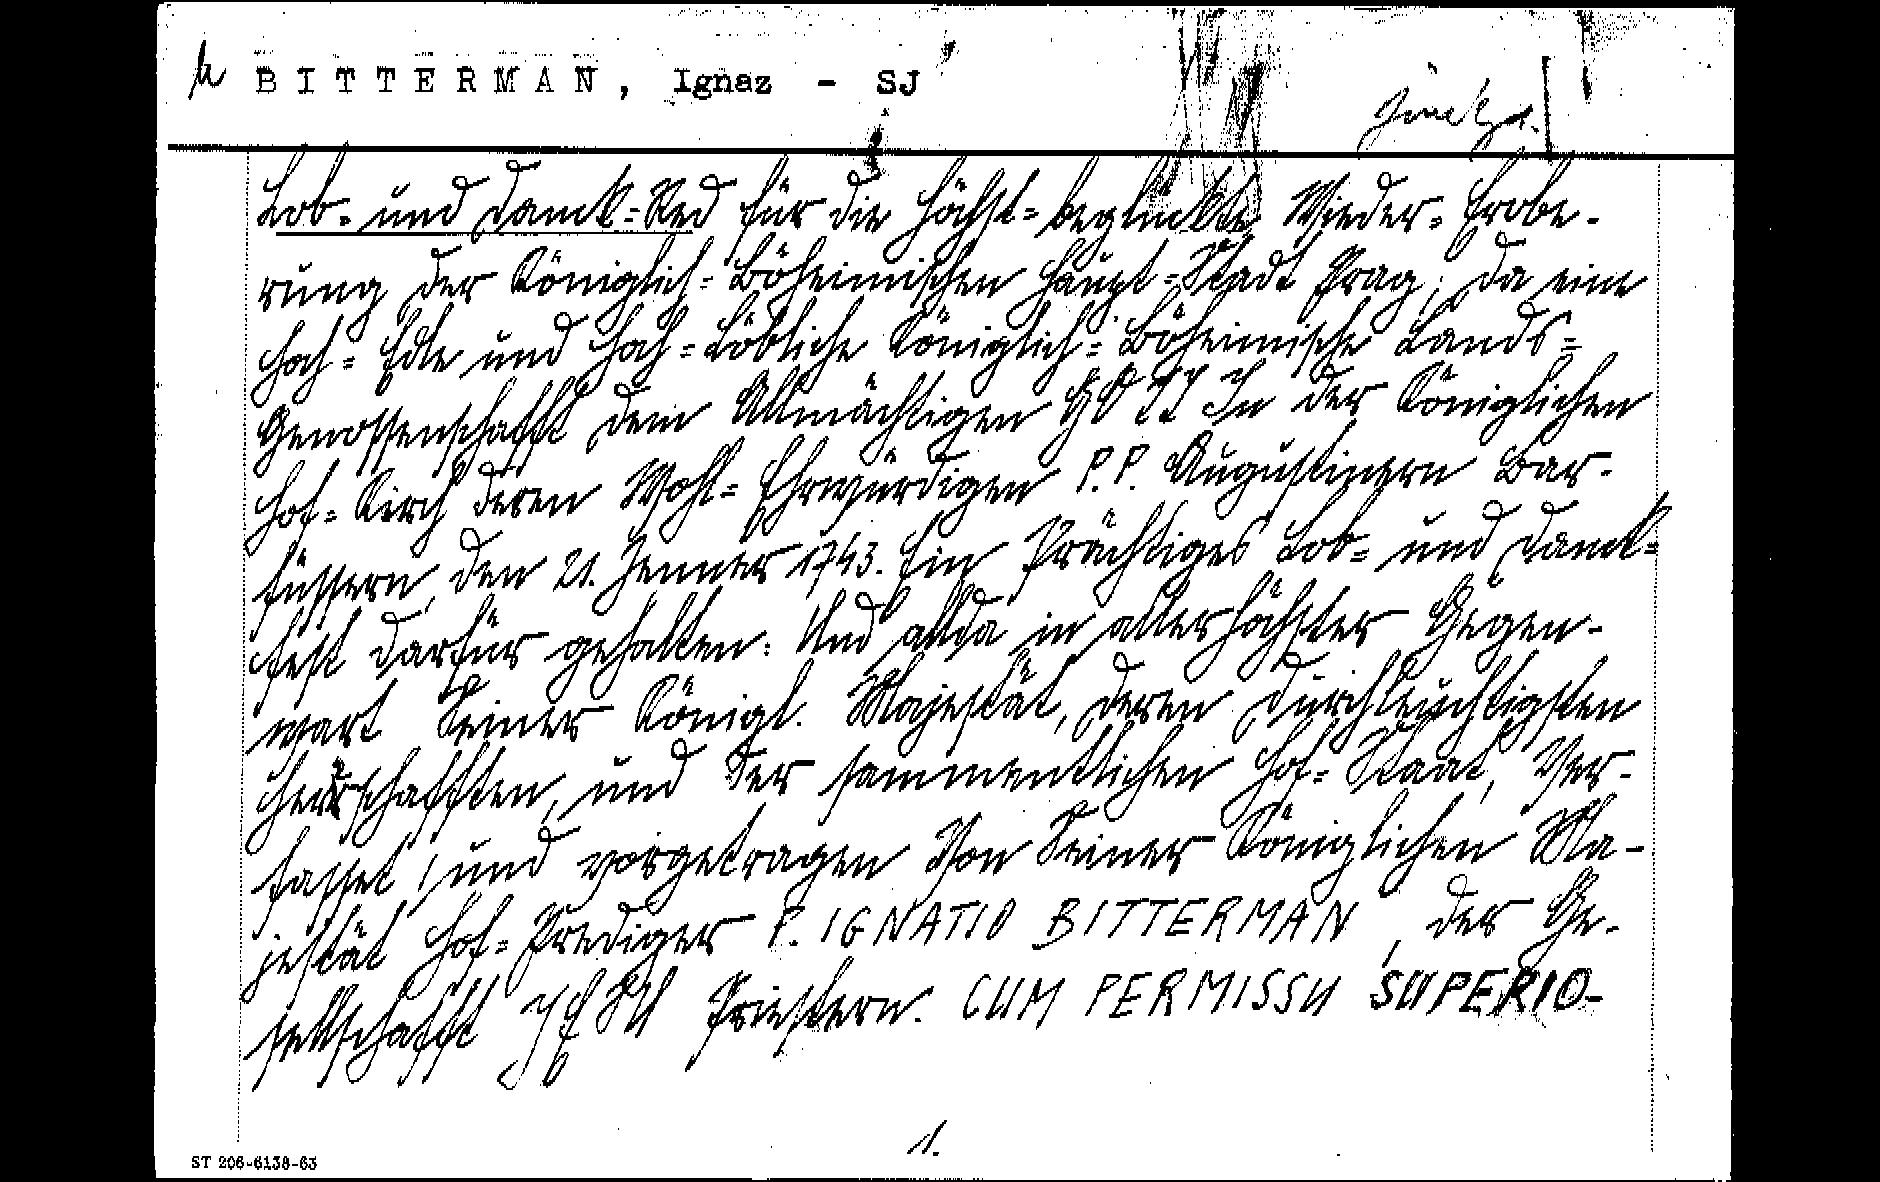 BITTERMAN, Ignaz - SJ
Lob- und Danck-Red für die höchst-beglückte Wieder-Erobe-
rung der Königlich-Böheimischen Haupt-Stadt Prag; da eine
Hoch-Edle und Hoch-Löbliche Königlich-Böheimische Lands-
Genossenschafft dem Allmächtigen GOTT In der Königlichen
Hof-Kirch deren Wohl-Ehrwürdigen P.P. Augustinern Bar-
füssern, den 21. Jenner 1743. Ein Prächtiges Lob- und Danck-
Fest darfür gehalten: Und allda in allerhöchster Gegen-
wart Seiner Königl. Majestät, deren Durchleuchtigsten
Herrschafften, und der sammentlichen Hof-Staat, Ver-
fasset, und vorgetragen Von Seiner Königlichen Ma-
jestät Hof-Prediger P. IGNATIO BITTERMAN, der Ge-
sellschafft JESU Priestern. CUM PERMISSU SUPERIO-
1.
ST 206-6138-63